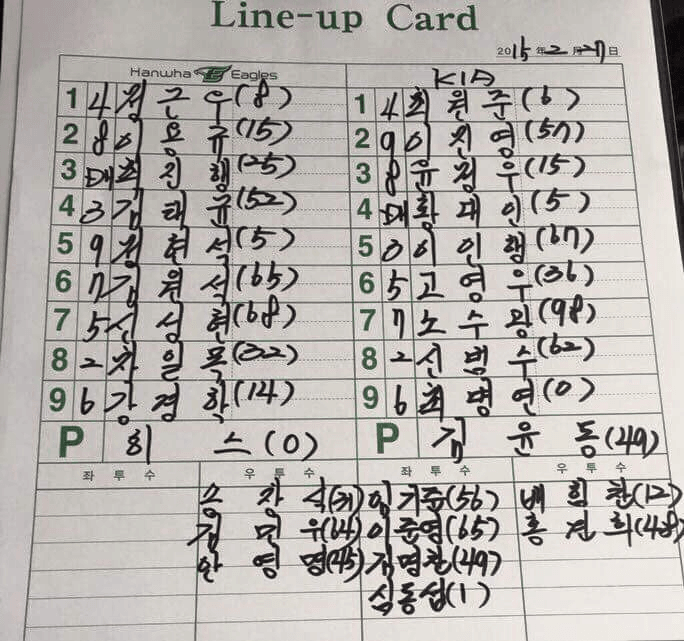 Line-up Card
2015年 2月 27日
Hanwha Eagles KIA
1 4 정근우(8) 1 4 최원준(6)
2 8 이용규(15) 2 9 이진영(57)
3 DH 최진행(25) 3 8 윤정우(15)
4 3 김태균(52) 4 DH 황대인(5)
5 9 정현석(5) 5 3 이인행(67)
6 7 김원석(65) 6 5 고영우(36)
7 5 신성현(68) 7 7 노수광(98)
8 2 차일목(32) 8 2 신범수(62)
9 6 강경학(14) 9 6 최병연(0)
P 히스(0) P 김윤동(49)
좌투수 우투수 좌투수 우투수
송창식 임기준(56) 배힘찬(12)
김민우(64) 이준영(65) 홍건희(48)
안영명(45) 김명찬(49)
심동섭(1)